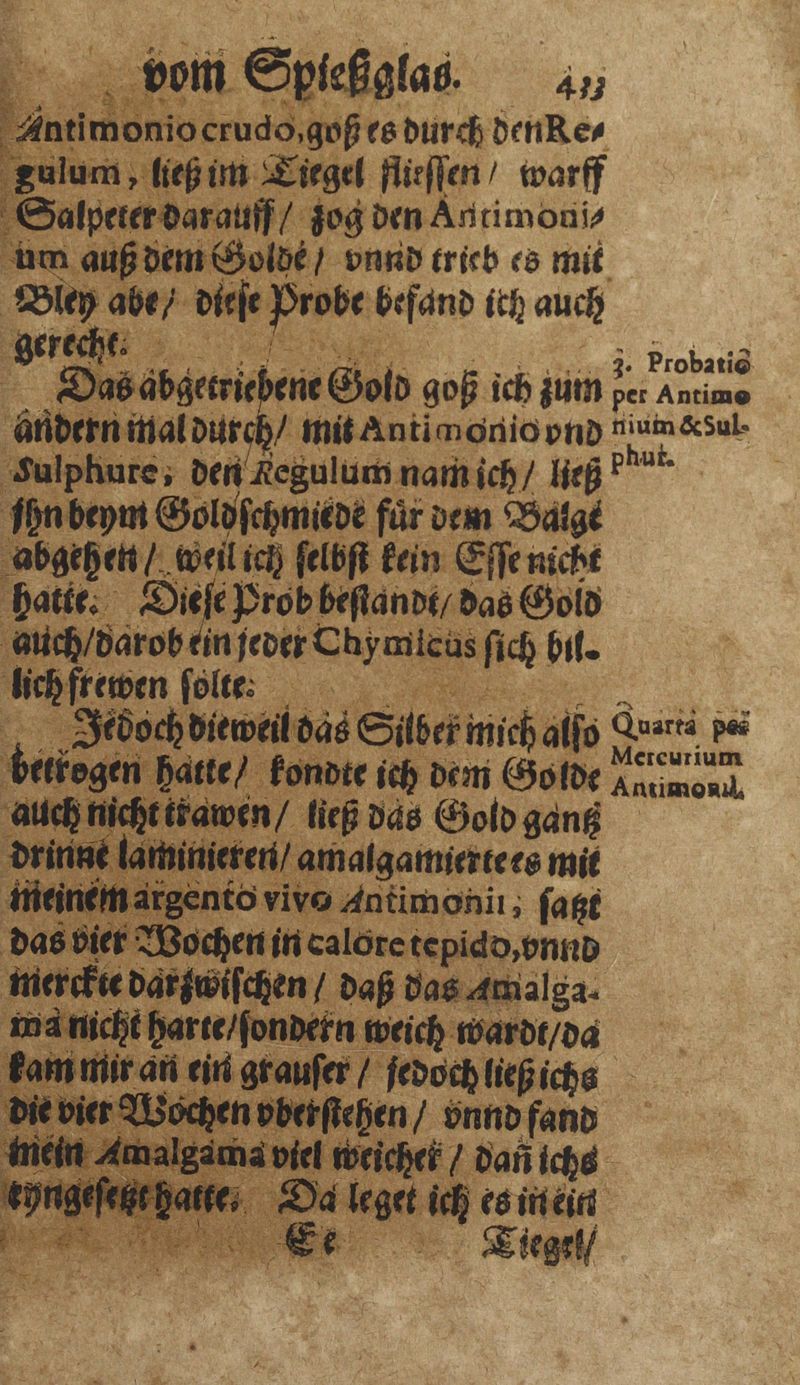 vom Spießglas. 433
Antimonio crudo, goß es durch den Re-
gulum, ließ im Tiegel fliessen / warff
Salpeter darauff / zog den Antimoni-
um auß dem Golde / vnnd trieb es mit
Bley abe / diese Probe befand ich auch
gerecht.
Das abgetriebene Gold goß ich zum
andern mal durch / mit Antimonio vnd
Sulphure, den Regulum nam ich / ließ
jhn beym Goldschmiede für dem Balge
abgehen / weil ich selbst kein Esse nicht
hatte. Diese Prob bestandt / das Gold
auch / darob ein jeder Chymicus sich bil-
lich frewen solte.
3. Probatio
per Antimo
nium & Sul-
phur.
Jedoch dieweil das Silber mich also
betrogen hatte / kondte ich dem Golde
auch nicht trawen / ließ das Gold gantz
drinne laminieren / amalgamierte es mit
meinem argento vivo Antimonii, satzt
das vier Wochen in calore tepido, vnnd
merckte darzwischen / daß das Amalga-
ma nicht harte / sondern weich wardt / da
kam mir an ein grauser / jedoch ließ ichs
die vier Wochen vberstehen / vnnd fand
mein Amalgama viel weicher / dañ ichs
eyngesetzt hatte. Da leget ich es in ein
Quarta per
Mercurium
Antimonii.
Ee Tiegel /